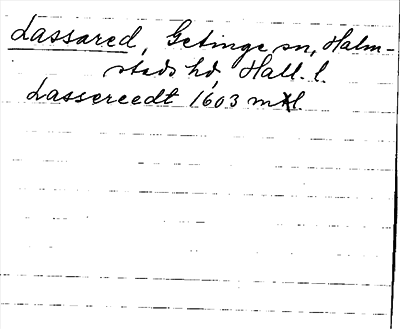 Lassared, Getinge sn, Halm-
stads hd, Hall. l.
Lassereedt 1603 mtl.